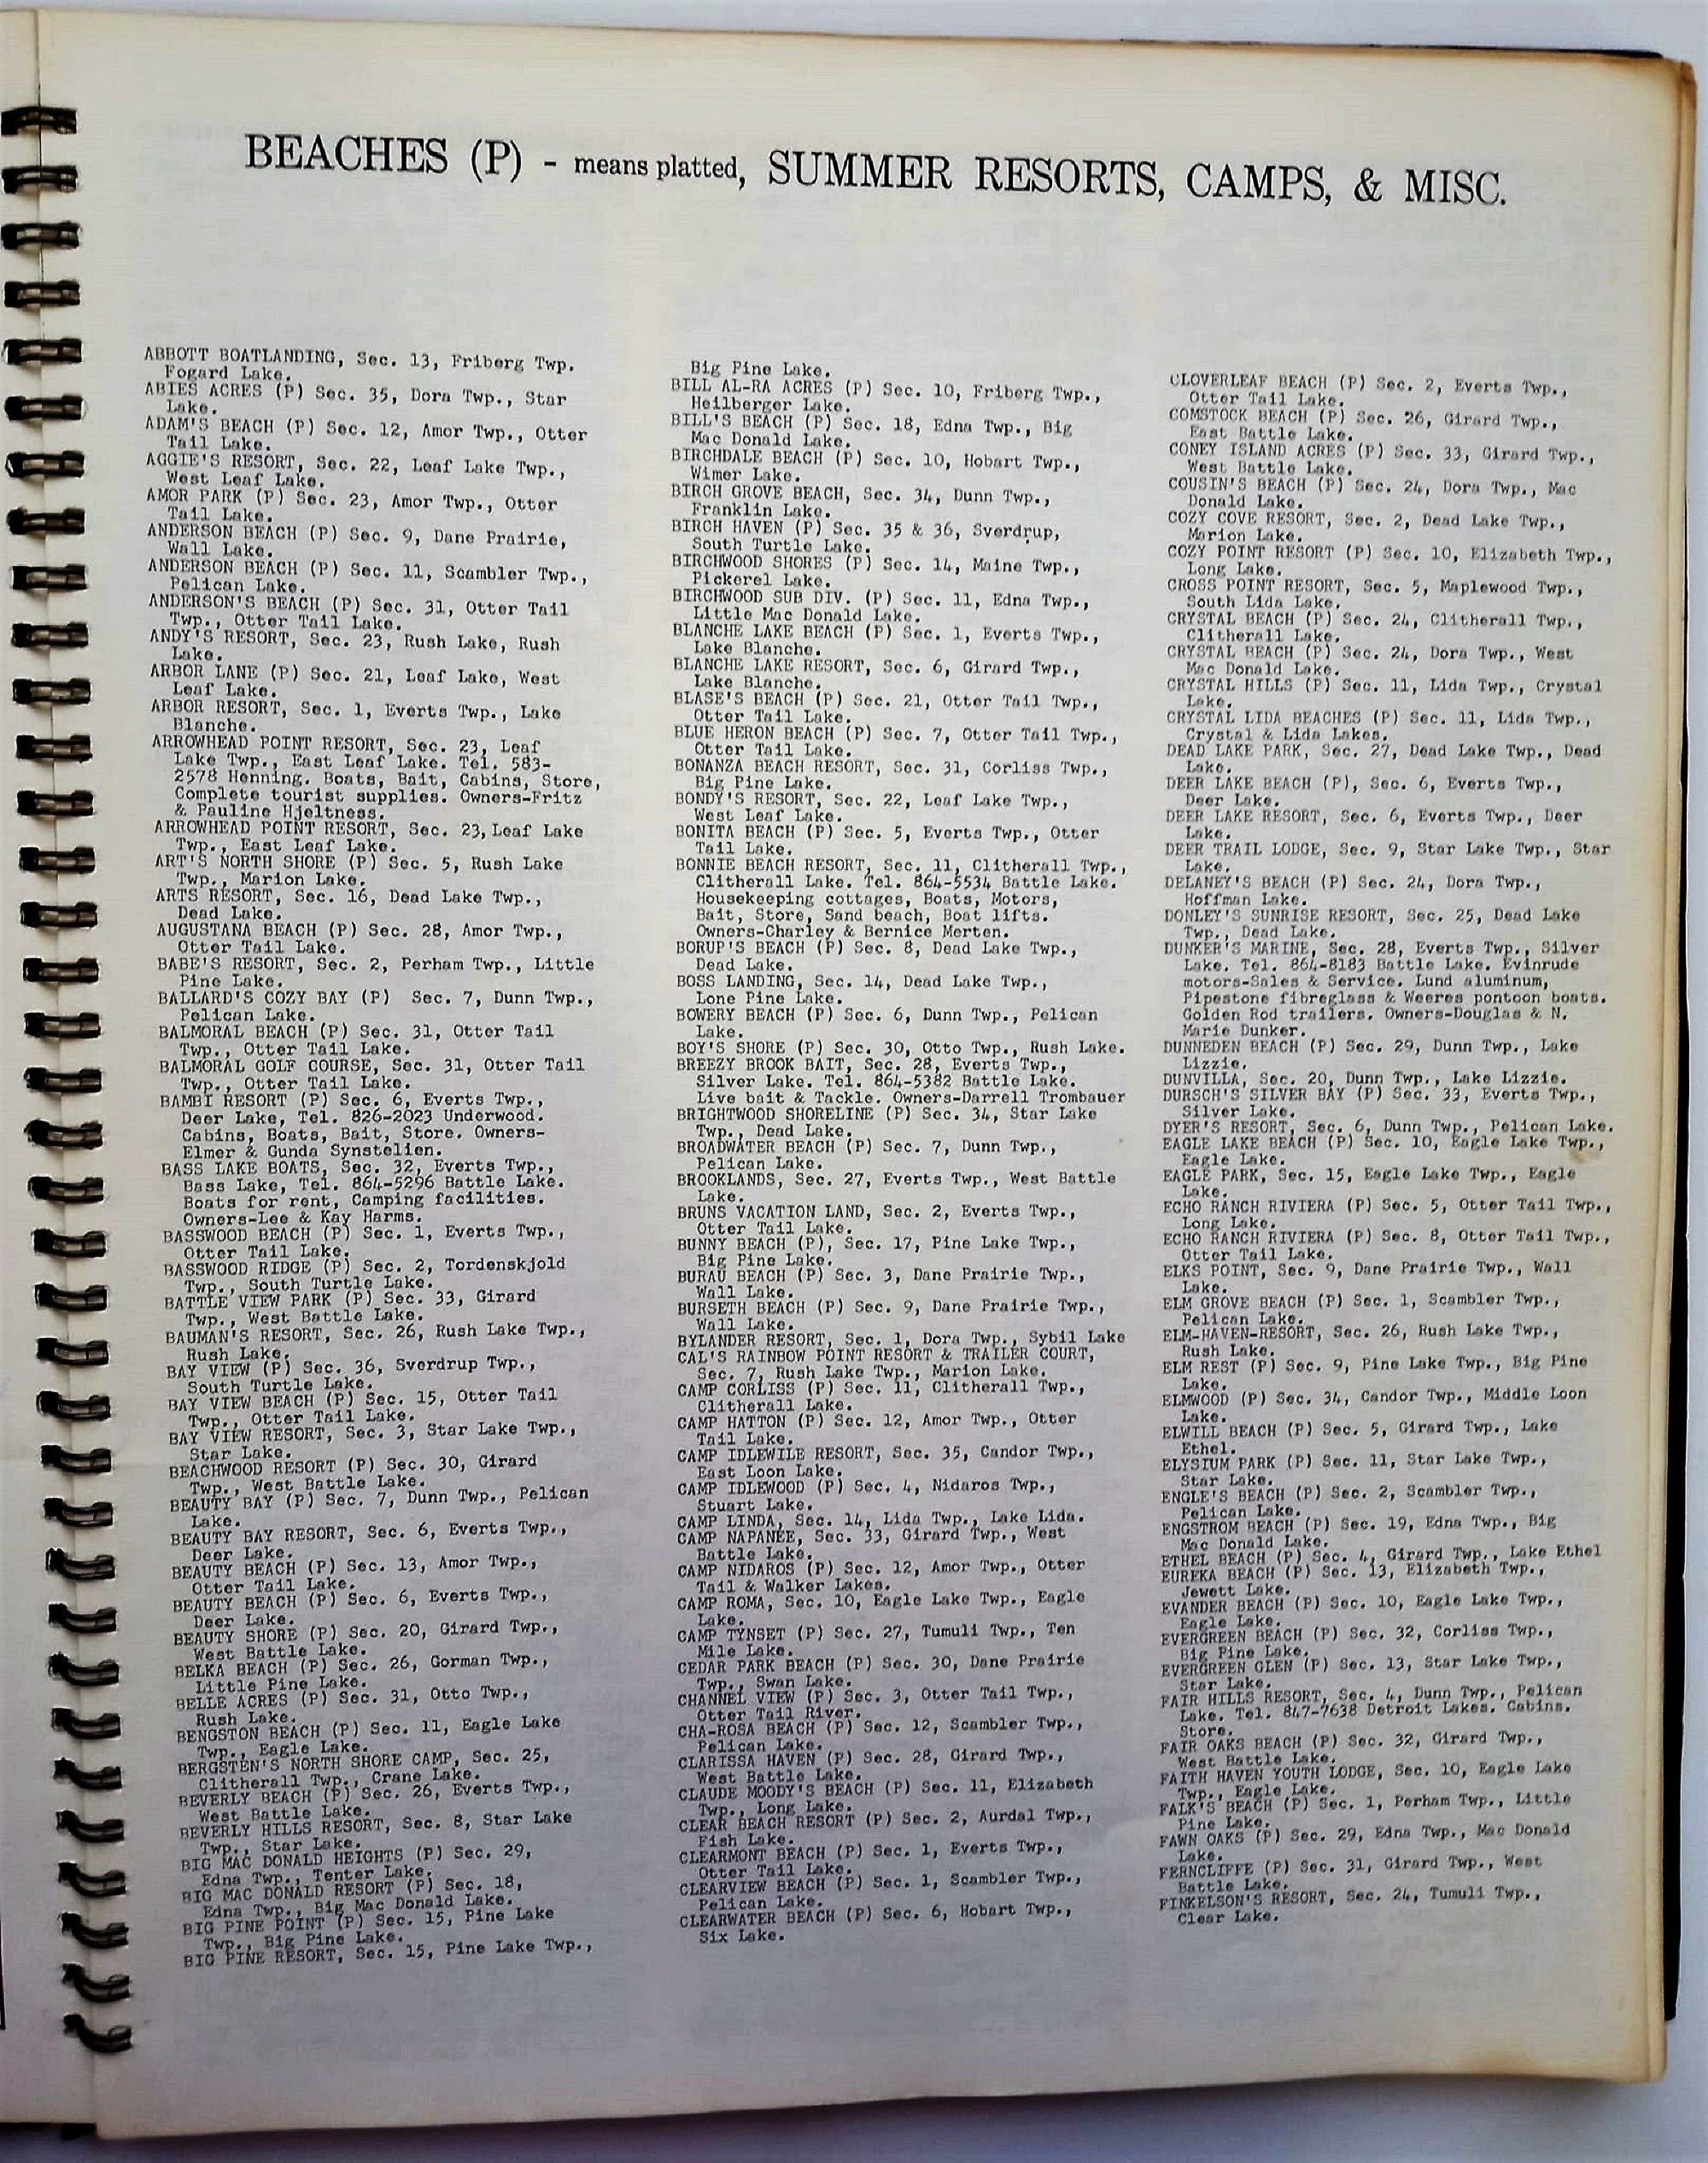 BEACHES (P) - means platted, SUMMER RESORTS, CAMPS, & MISC.
ABBOTT BOATLANDING, Sec. 13, Friberg Twp.
Fogard Lake.
ABIES ACRES (P) Sec. 35, Dora Twp., Star
Lake.
ADAM'S BEACH (P) Sec. 12, Amor Twp., Otter
Tail Lake.
AGGIE'S RESORT, Sec. 22, Leaf Lake Twp.,
West Leaf Lake.
AMOR PARK (P) Sec. 23, Amor Twp., Otter
Tail Lake.
ANDERSON BEACH (P) Sec. 9, Dane Prairie,
Wall Lake.
ANDERSON BEACH (P) Sec. 11, Scambler Twp.,
Pelican Lake.
ANDERSON'S BEACH (P) Sec. 31, Otter Tail
Twp., Otter Tail Lake.
ANDY'S RESORT, Sec. 23, Rush Lake, Rush
Lake.
ARBOR LANE (P) Sec. 21, Leaf Lake, West
Leaf Lake.
ARBOR RESORT, Sec. 1, Everts Twp., Lake
Blanche.
ARROWHEAD POINT RESORT, Sec. 23, Leaf
Lake Twp., East Leaf Lake. Tel. 583-
2578 Henning. Boats, Bait, Cabins, Store,
Complete tourist supplies. Owners-Fritz
& Pauline Hjeltness.
ARROWHEAD POINT RESORT, Sec. 23, Leaf Lake
Twp., East Leaf Lake.
ART'S NORTH SHORE (P) Sec. 5, Rush Lake
Twp., Marion Lake.
ARTS RESORT, Sec. 16, Dead Lake Twp.,
Dead Lake.
AUGUSTANA BEACH (P) Sec. 28, Amor Twp.,
Otter Tail Lake.
BABE'S RESORT, Sec. 2, Perham Twp., Little
Pine Lake.
BALLARD'S COZY BAY (P) Sec. 7, Dunn Twp.,
Pelican Lake.
BALMORAL BEACH (P) Sec. 31, Otter Tail
Twp., Otter Tail Lake.
BALMORAL GOLF COURSE, Sec. 31, Otter Tail
Twp., Otter Tail Lake.
BAMBI RESORT (P) Sec. 6, Everts Twp.,
Deer Lake, Tel. 826-2023 Underwood.
Cabins, Boats, Bait, Store. Owners-
Elmer & Gunda Synstelien.
BASS LAKE BOATS, Sec. 32, Everts Twp.,
Bass Lake, Tel. 864-5296 Battle Lake.
Boats for rent, Camping facilities.
Owners-Lee & Kay Harms.
BASSWOOD BEACH (P) Sec. 1, Everts Twp.,
Otter Tail Lake.
BASSWOOD RIDGE (P) Sec. 2, Tordenskjold
Twp., South Turtle Lake.
BATTLE VIEW PARK (P) Sec. 33, Girard
Twp., West Battle Lake.
BAUMAN'S RESORT, Sec. 26, Rush Lake Twp.,
Rush Lake.
BAY VIEW (P) Sec. 36, Sverdrup Twp.,
South Turtle Lake.
BAY VIEW BEACH (P) Sec. 15, Otter Tail
Twp., Otter Tail Lake.
BAY VIEW RESORT, Sec. 3, Star Lake Twp.,
Star Lake.
BEACHWOOD RESORT (P) Sec. 30, Girard
Twp., West Battle Lake.
BEAUTY BAY (P) Sec. 7, Dunn Twp., Pelican
Lake.
BEAUTY BAY RESORT, Sec. 6, Everts Twp.,
Deer Lake.
BEAUTY BEACH (P) Sec. 13, Amor Twp.,
Otter Tail Lake.
BEAUTY BEACH (P) Sec. 6, Everts Twp.,
Deer Lake.
BEAUTY SHORE (P) Sec. 20, Girard Twp.,
West Battle Lake.
BELKA BEACH (P) Sec. 26, Gorman Twp.,
Little Pine Lake.
BELLE ACRES (P) Sec. 31, Otto Twp.,
Rush Lake.
BENGSTON BEACH (P) Sec. 11, Eagle Lake
Twp., Eagle Lake.
BERGSTEN'S NORTH SHORE CAMP, Sec. 25,
Clitherall Twp., Crane Lake.
BEVERLY BEACH (P) Sec. 26, Everts Twp.,
West Battle Lake.
BEVERLY HILLS RESORT, Sec. 8, Star Lake
Twp., Star Lake.
BIG MAC DONALD HEIGHTS (P) Sec. 29,
Edna Twp., Tenter Lake.
BIG MAC DONALD RESORT (P) Sec. 18,
Edna Twp., Big Mac Donald Lake.
BIG PINE POINT (P) Sec. 15, Pine Lake
Twp., Big Pine Lake.
BIG PINE RESORT, Sec. 15, Pine Lake Twp.,
Big Pine Lake.
BILL AL-RA ACRES (P) Sec. 10, Friberg Twp.,
Heilberger Lake.
BILL'S BEACH (P) Sec. 18, Edna Twp., Big
Mac Donald Lake.
BIRCHDALE BEACH (P) Sec. 10, Hobart Twp.,
Wimer Lake.
BIRCH GROVE BEACH, Sec. 34, Dunn Twp.,
Franklin Lake.
BIRCH HAVEN (P) Sec. 35 & 36, Sverdrup,
South Turtle Lake.
BIRCHWOOD SHORES (P) Sec. 14, Maine Twp.,
Pickerel Lake.
BIRCHWOOD SUB DIV. (P) Sec. 11, Edna Twp.,
Little Mac Donald Lake.
BLANCHE LAKE BEACH (P) Sec. 1, Everts Twp.,
Lake Blanche.
BLANCHE LAKE RESORT, Sec. 6, Girard Twp.,
Lake Blanche.
BLASE'S BEACH (P) Sec. 21, Otter Tail Twp.,
Otter Tail Lake.
BLUE HERON BEACH (P) Sec. 7, Otter Tail Twp.,
Otter Tail Lake.
BONANZA BEACH RESORT, Sec. 31, Corliss Twp.,
Big Pine Lake.
BONDY'S RESORT, Sec. 22, Leaf Lake Twp.,
West Leaf Lake.
BONITA BEACH (P) Sec. 5, Everts Twp., Otter
Tail Lake.
BONNIE BEACH RESORT, Sec. 11, Clitherall Twp.,
Clitherall Lake. Tel. 864-5534 Battle Lake.
Housekeeping cottages, Boats, Motors,
Bait, Store, Sand beach, Boat lifts.
Owners-Charley & Bernice Merten.
BORUP'S BEACH (P) Sec. 8, Dead Lake Twp.,
Dead Lake.
BOSS LANDING, Sec. 14, Dead Lake Twp.,
Lone Pine Lake.
BOWERY BEACH (P) Sec. 6, Dunn Twp., Pelican
Lake.
BOY'S SHORE (P) Sec. 30, Otto Twp., Rush Lake.
BREEZY BROOK BAIT, Sec. 28, Everts Twp.,
Silver Lake. Tel. 864-5382 Battle Lake.
Live bait & Tackle. Owners-Darrell Trombauer
BRIGHTWOOD SHORELINE (P) Sec. 34, Star Lake
Twp., Dead Lake.
BROADWATER BEACH (P) Sec. 7, Dunn Twp.,
Pelican Lake.
BROOKLANDS, Sec. 27, Everts Twp., West Battle
Lake.
BRUNS VACATION LAND, Sec. 2, Everts Twp.,
Otter Tail Lake.
BUNNY BEACH (P), Sec. 17, Pine Lake Twp.,
Big Pine Lake.
BURAU BEACH (P) Sec. 3, Dane Prairie Twp.,
Wall Lake.
BURSETH BEACH (P) Sec. 9, Dane Prairie Twp.,
Wall Lake.
BYLANDER RESORT, Sec. 1, Dora Twp., Sybil Lake
CAL'S RAINBOW POINT RESORT & TRAILER COURT,
Sec. 7, Rush Lake Twp., Marion Lake.
CAMP CORLISS (P) Sec. 11, Clitherall Twp.,
Clitherall Lake.
CAMP HATTON (P) Sec. 12, Amor Twp., Otter
Tail Lake.
CAMP IDLEWILE RESORT, Sec. 35, Candor Twp.,
East Loon Lake.
CAMP IDLEWOOD (P) Sec. 4, Nidaros Twp.,
Stuart Lake.
CAMP LINDA, Sec. 14, Lida Twp., Lake Lida.
CAMP NAPANEE, Sec. 33, Girard Twp., West
Battle Lake.
CAMP NIDAROS (P) Sec. 12, Amor Twp., Otter
Tail & Walker Lakes.
CAMP ROMA, Sec. 10, Eagle Lake Twp., Eagle
Lake.
CAMP TYNSET (P) Sec. 27, Tumuli Twp., Ten
Mile Lake.
CEDAR PARK BEACH (P) Sec. 30, Dane Prairie
Twp., Swan Lake.
CHANNEL VIEW (P) Sec. 3, Otter Tail Twp.,
Otter Tail River.
CHA-ROSA BEACH (P) Sec. 12, Scambler Twp.,
Pelican Lake.
CLARISSA HAVEN (P) Sec. 28, Girard Twp.,
West Battle Lake.
CLAUDE MOODY'S BEACH (P) Sec. 11, Elizabeth
Twp., Long Lake.
CLEAR BEACH RESORT (P) Sec. 2, Aurdal Twp.,
Fish Lake.
CLEARMONT BEACH (P) Sec. 1, Everts Twp.,
Otter Tail Lake.
CLEARVIEW BEACH (P) Sec. 1, Scambler Twp.,
Pelican Lake.
CLEARWATER BEACH (P) Sec. 6, Hobart Twp.,
Six Lake.
CLOVERLEAF BEACH (P) Sec. 2, Everts Twp.,
Otter Tail Lake.
COMSTOCK BEACH (P) Sec. 26, Girard Twp.,
East Battle Lake.
CONEY ISLAND ACRES (P) Sec. 33, Girard Twp.,
West Battle Lake.
COUSIN'S BEACH (P) Sec. 24, Dora Twp., Mac
Donald Lake.
COZY COVE RESORT, Sec. 2, Dead Lake Twp.,
Marion Lake.
COZY POINT RESORT (P) Sec. 10, Elizabeth Twp.,
Long Lake.
CROSS POINT RESORT, Sec. 5, Maplewood Twp.,
South Lida Lake.
CRYSTAL BEACH (P) Sec. 24, Clitherall Twp.,
Clitherall Lake.
CRYSTAL BEACH (P) Sec. 24, Dora Twp., West
Mac Donald Lake.
CRYSTAL HILLS (P) Sec. 11, Lida Twp., Crystal
Lake.
CRYSTAL LIDA BEACHES (P) Sec. 11, Lida Twp.,
Crystal & Lida Lakes.
DEAD LAKE PARK, Sec. 27, Dead Lake Twp., Dead
Lake.
DEER LAKE BEACH (P), Sec. 6, Everts Twp.,
Deer Lake.
DEER LAKE RESORT, Sec. 6, Everts Twp., Deer
Lake.
DEER TRAIL LODGE, Sec. 9, Star Lake Twp., Star
Lake.
DELANEY'S BEACH (P) Sec. 24, Dora Twp.,
Hoffman Lake.
DONLEY'S SUNRISE RESORT, Sec. 25, Dead Lake
Twp., Dead Lake.
DUNKER'S MARINE, Sec. 28, Everts Twp., Silver
Lake. Tel. 864-8183 Battle Lake. Evinrude
motors-Sales & Service. Lund aluminum,
Pipestone fibreglass & Weeres pontoon boats.
Golden Rod trailers. Owners-Douglas & N.
Marie Dunker.
DUNNEDEN BEACH (P) Sec. 29, Dunn Twp., Lake
Lizzie.
DUNVILLA, Sec. 20, Dunn Twp., Lake Lizzie.
DURSCH'S SILVER BAY (P) Sec. 33, Everts Twp.,
Silver Lake.
DYER'S RESORT, Sec. 6, Dunn Twp., Pelican Lake.
EAGLE LAKE BEACH (P) Sec. 10, Eagle Lake Twp.,
Eagle Lake.
EAGLE PARK, Sec. 15, Eagle Lake Twp., Eagle
Lake.
ECHO RANCH RIVIERA (P) Sec. 5, Otter Tail Twp.,
Long Lake.
ECHO RANCH RIVIERA (P) Sec. 8, Otter Tail Twp.,
Otter Tail Lake.
ELKS POINT, Sec. 9, Dane Prairie Twp., Wall
Lake.
ELM GROVE BEACH (P) Sec. 1, Scambler Twp.,
Pelican Lake.
ELM-HAVEN-RESORT, Sec. 26, Rush Lake Twp.,
Rush Lake.
ELM REST (P) Sec. 9, Pine Lake Twp., Big Pine
Lake.
ELMWOOD (P) Sec. 34, Candor Twp., Middle Loon
Lake.
ELWILL BEACH (P) Sec. 5, Girard Twp., Lake
Ethel.
ELYSIUM PARK (P) Sec. 11, Star Lake Twp.,
Star Lake.
ENGLE'S BEACH (P) Sec. 2, Scambler Twp.,
Pelican Lake.
ENGSTROM BEACH (P) Sec. 19, Edna Twp., Big
Mac Donald Lake.
ETHEL BEACH (P) Sec. 4, Girard Twp., Lake Ethel
EUREKA BEACH (P) Sec. 13, Elizabeth Twp.,
Jewett Lake.
EVANDER BEACH (P) Sec. 10, Eagle Lake Twp.,
Eagle Lake.
EVERGREEN BEACH (P) Sec. 32, Corliss Twp.,
Big Pine Lake.
EVERGREEN GLEN (P) Sec. 13, Star Lake Twp.,
Star Lake.
FAIR HILLS RESORT, Sec. 4, Dunn Twp., Pelican
Lake. Tel. 847-7638 Detroit Lakes. Cabins.
Store.
FAIR OAKS BEACH (P) Sec. 32, Girard Twp.,
West Battle Lake.
FAITH HAVEN YOUTH LODGE, Sec. 10, Eagle Lake
Twp., Eagle Lake.
FALK'S BEACH (P) Sec. 1, Perham Twp., Little
Pine Lake.
FAWN OAKS (P) Sec. 29, Edna Twp., Mac Donald
Lake.
FERNCLIFFE (P) Sec. 31, Girard Twp., West
Battle Lake.
FINKELSON'S RESORT, Sec. 24, Tumuli Twp.,
Clear Lake.